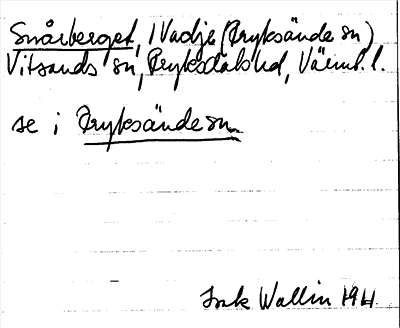 Snårberget, 1 Vadje (Fryksände sn)
Vitsands sn, Fryksdals hd, Värml. l.
se i Fryksände sn
Wallin 1941